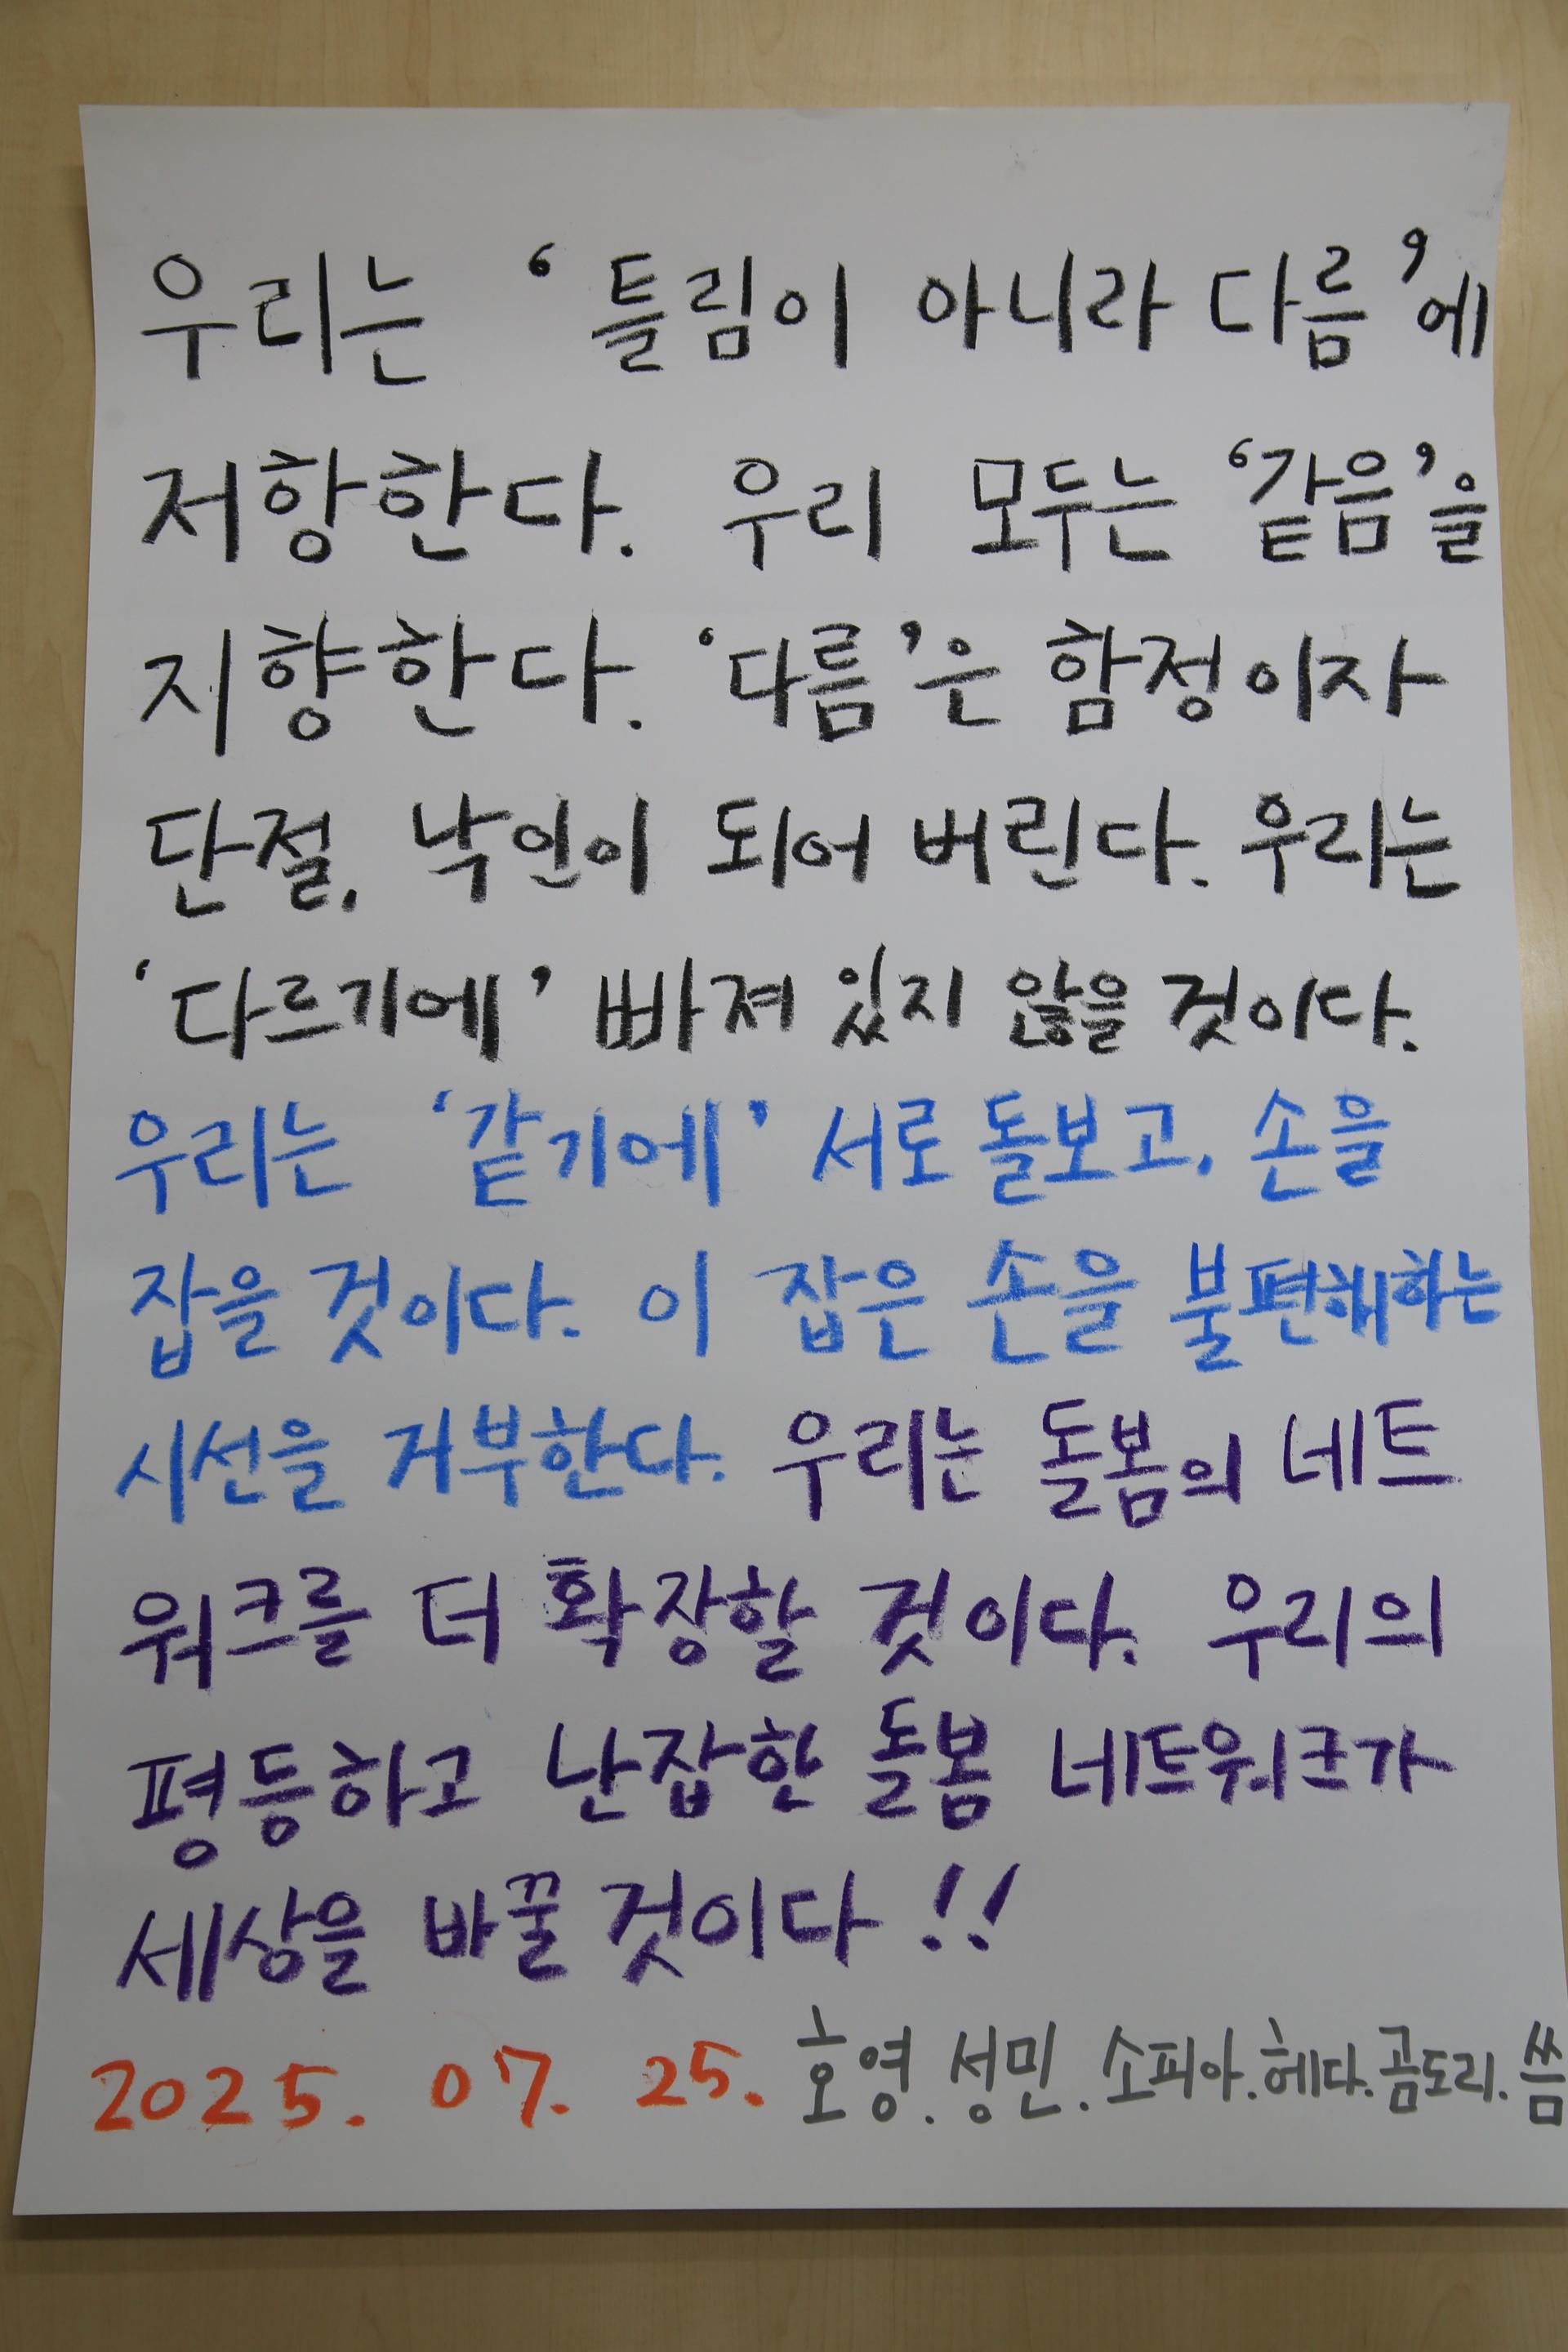 우리는 ‘틀림이 아니라 다름’에
저항한다. 우리 모두는 ‘같음’을
지향한다. ‘다름’은 함정이자
단절, 낙인이 되어 버린다. 우리는
‘다르기에’ 빠져 있지 않을 것이다.
우리는 ‘같기에’ 서로 돌보고, 손을
잡을 것이다. 이 잡은 손을 불편해하는
시선을 거부한다. 우리는 돌봄의 네트
워크를 더 확장할 것이다. 우리의
평등하고 난잡한 돌봄 네트워크가
세상을 바꿀 것이다!!
2025. 07. 25. 호영. 성민. 소피아. 헤다. 곰도리. 씀